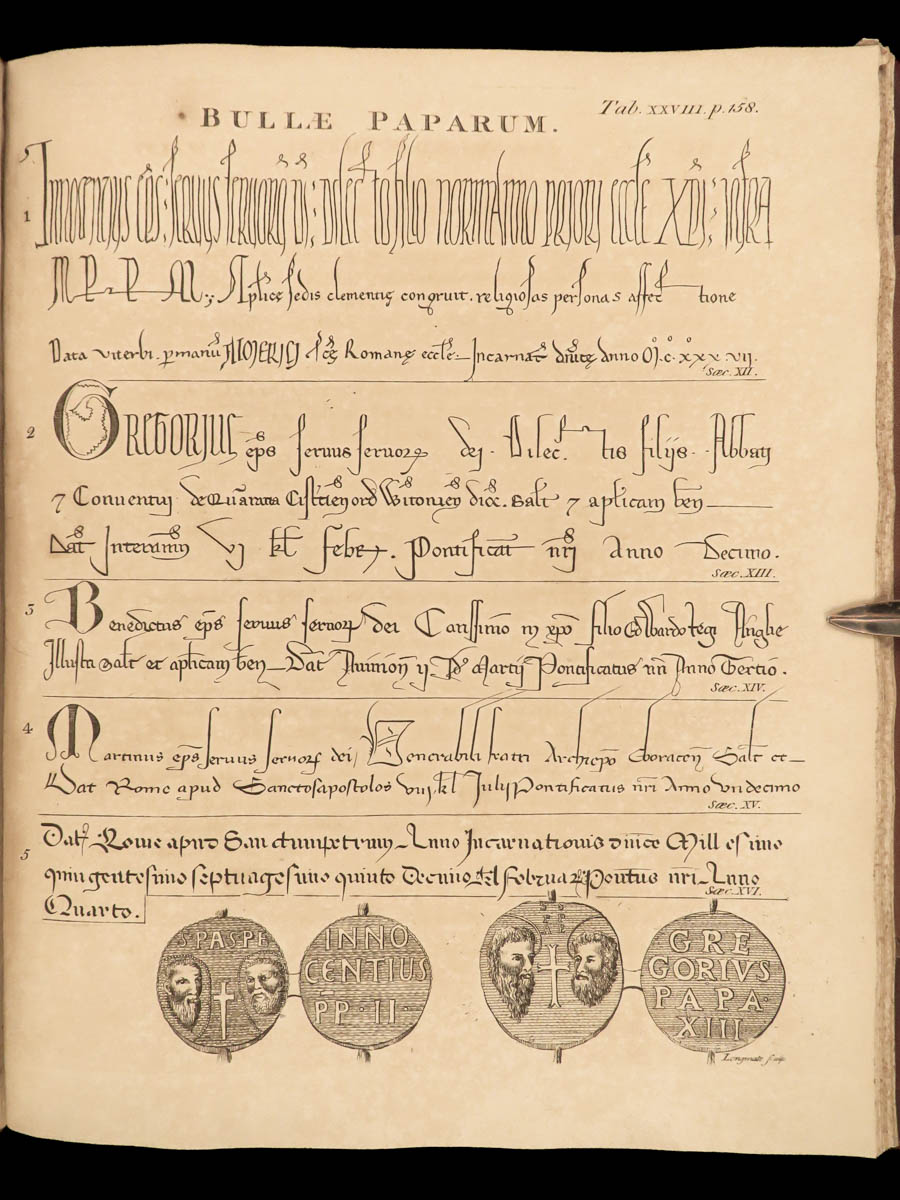 BULLÆ PAPARUM.
Tab. XXVIII. p. 158.
5.
1
Innocentius eps: servus servorū di: dilecto filio normanno priori eccle Xpi: infra
Aplicę sedis clementię congruit. religiosas personas affectione
Data viterbi. p manū AIMERICI scę Romanę eccle Incarnat dnicę anno M. c. xxx. vii.
Sæc. XII.
2 GREGORIUS eps servus servorꝝ dei. Dilectis filiis Abbati
⁊ Conventui de Quarraria Cisterien ord Wiṫonien dioc. Salt ⁊ aplicam ben
Dat Interamn VI kl Febr. Pontificat nri Anno Decimo.
Sæc. XIII.
3 Benedictus eps servus servorꝝ dei Carissimo in xpo filio Edwardo regi Anglie
Illustri Salt et aplicam ben Dat Avinion ij Id Martij Pontificatus nri Anno Tertio.
Sæc. XIV.
4 Martinus eps servus servorꝝ dei Venerabili fratri Archiepo Eboracen Salt et
Dat Rome apud Sanctosapostolos viij kl Julii Pontificatus nri Anno Undecimo
Sæc. XV.
5 Dat Rome apud Sanctumpetrum Anno Incarnationis dnice Millesimo
quingentesimo septuagesimo quinto Decimo kl Februar Pontus nri Anno
Sæc. XVI.
Quarto.
S·PA S·PE
INNO
CENTIUS
PP·II·
GRE
GORIVS
PAPA·
XIII
Longmate sculp.